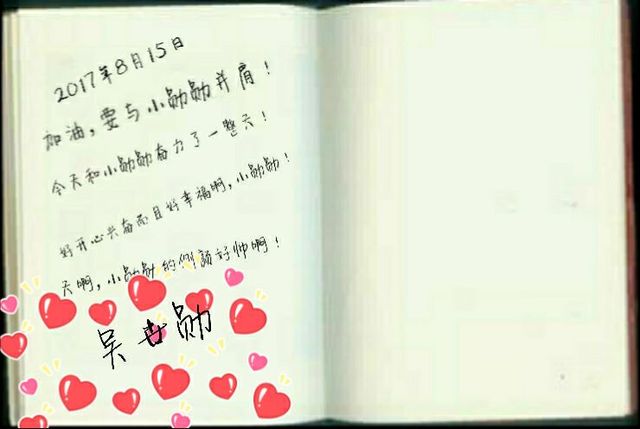 2017年8月15日
加油，要与小勋勋并肩！
今天和小勋勋奋力了一整天！
好开心兴奋而且好幸福啊，小勋勋！
天啊，小勋勋的侧颜好帅啊！
吴世勋